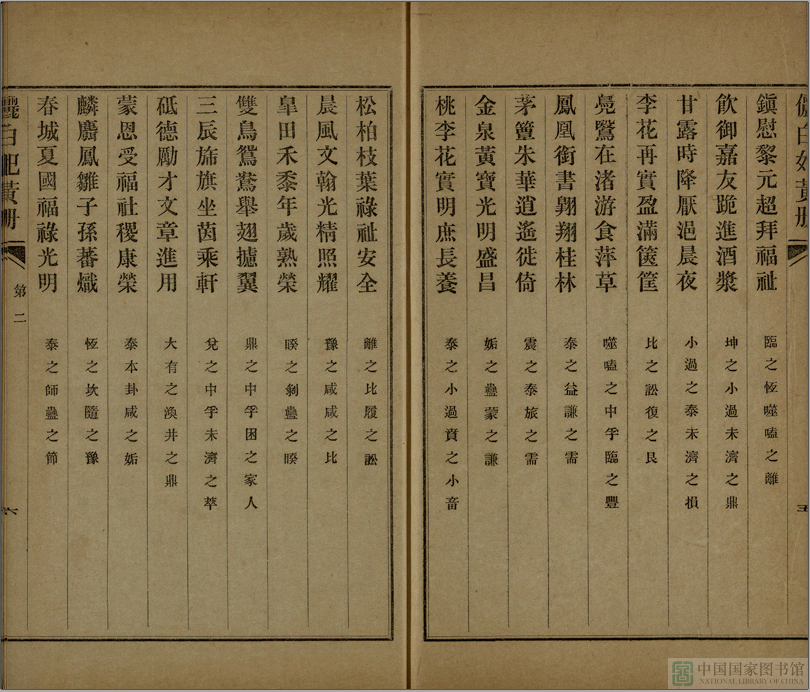 鎭慰黎元超拜福祉 臨之恆噬嗑之離
飲御嘉友跪進酒漿 坤之小過未濟之鼎
甘露時降厭浥晨夜 小過之泰未濟之損
李花再實盈滿篋筐 比之訟復之艮
鳧鷖在渚游食萍草 噬嗑之中孚臨之豐
鳳凰銜書翱翔桂林 泰之益謙之需
茅簦朱華逍遙徙倚 震之泰旅之需
金泉黃寶光明盛昌 姤之蠱蒙之謙
桃李花實明庶長養 泰之小過賁之小音
五
松柏枝葉祿祉安全 離之比履之訟
晨風文翰光精照耀 豫之咸咸之比
皐田禾黍年歲熟榮 睽之剝蠱之睽
雙鳥鴛鴦舉翅攄翼 鼎之中孚困之家人
三辰旆旗坐茵乘軒 兌之中孚未濟之萃
砥德勵才文章進用 大有之渙井之鼎
蒙恩受福社稷康榮 泰本卦咸之姤
麟麕鳳雛子孫蕃熾 恆之坎隨之豫
春城夏國福祿光明 泰之師蠱之節
儷白妃黃册
第二
六
中国国家图书馆
NATIONAL LIBRARY OF CHINA